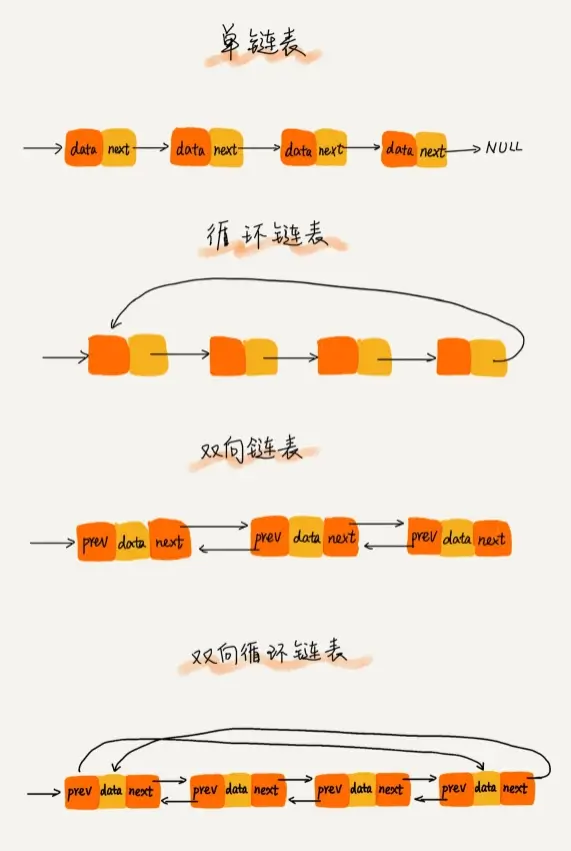 单链表
data next data next data next data next NULL
循环链表
双向链表
prev data next prev data next prev data next
双向循环链表
prev data next prev data next prev data next prev data next